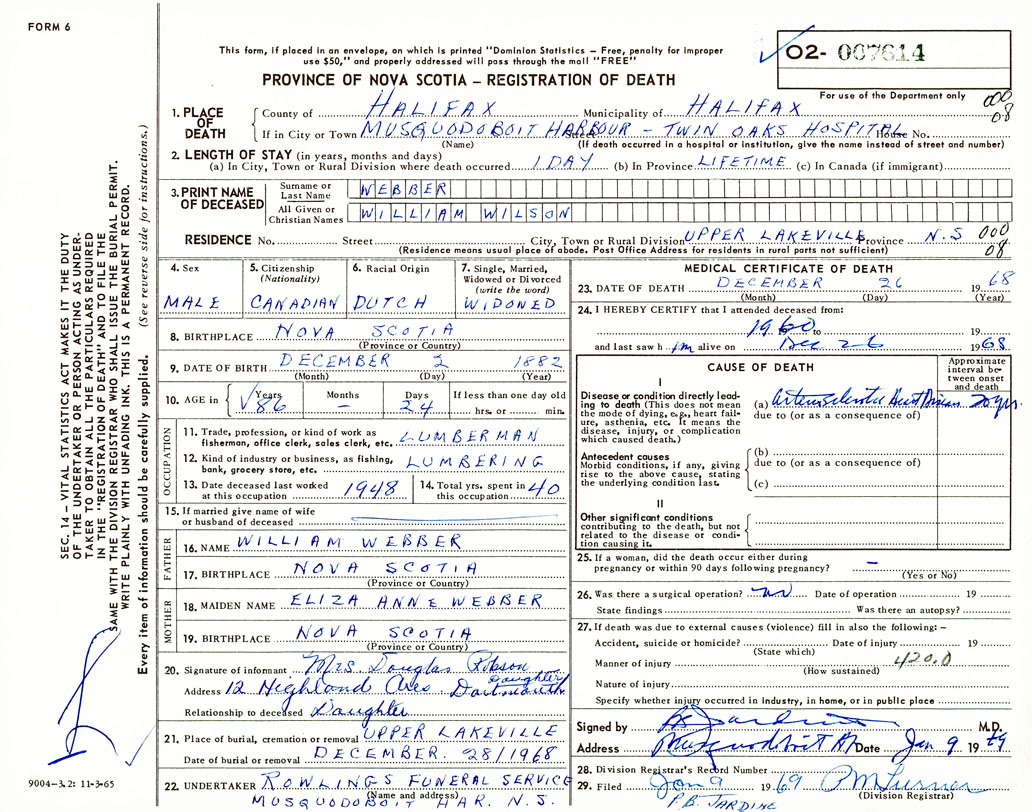 FORM 6
This form, if placed in an envelope, on which is printed "Dominion Statistics – Free, penalty for improper
use $50," and properly addressed will pass through the mail "FREE"
PROVINCE OF NOVA SCOTIA – REGISTRATION OF DEATH
O2- 007614
For use of the Department only
000
08
1. PLACE OF DEATH
County of HALIFAX Municipality of HALIFAX
If in City or Town MUSQUODOBOIT HARBOUR – TWIN OAKS HOSPITAL Street House No.
(Name) (If death occurred in a hospital or institution, give the name instead of street and number)
2. LENGTH OF STAY (in years, months and days)
(a) In City, Town or Rural Division where death occurred 1 DAY (b) In Province LIFETIME (c) In Canada (if immigrant)
3. PRINT NAME OF DECEASED
Surname or Last Name WEBBER
All Given or Christian Names WILLIAM WILSON
RESIDENCE No. Street City, Town or Rural Division UPPER LAKEVILLE Province N.S 000
08
(Residence means usual place of abode. Post Office Address for residents in rural parts not sufficient)
4. Sex 5. Citizenship (Nationality) 6. Racial Origin 7. Single, Married, Widowed or Divorced (write the word)
MALE CANADIAN DUTCH WIDONED
8. BIRTHPLACE NOVA SCOTIA
(Province or Country)
9. DATE OF BIRTH DECEMBER 2 1882
(Month) (Day) (Year)
10. AGE in Years Months Days If less than one day old
86 – 24 hrs. or min.
OCCUPATION
11. Trade, profession, or kind of work as
fisherman, office clerk, sales clerk, etc. LUMBERMAN
12. Kind of industry or business, as fishing,
bank, grocery store, etc. LUMBERING
13. Date deceased last worked at this occupation 1948 14. Total yrs. spent in this occupation 40
15. If married give name of wife
or husband of deceased
FATHER
16. NAME WILLIAM WEBBER
17. BIRTHPLACE NOVA SCOTIA
(Province or Country)
MOTHER
18. MAIDEN NAME ELIZA ANNE WEBBER
19. BIRTHPLACE NOVA SCOTIA
(Province or Country)
20. Signature of informant Mrs Douglas Robson
Daughter
Address 12 Highland Ave Dartmouth
Relationship to deceased Daughter
21. Place of burial, cremation or removal UPPER LAKEVILLE
Date of burial or removal DECEMBER. 28/1968
22. UNDERTAKER ROWLINGS FUNERAL SERVICE
(Name and address)
MUSQUODOBOIT HAR. N.S.
MEDICAL CERTIFICATE OF DEATH
23. DATE OF DEATH DECEMBER 26 1968
(Month) (Day) (Year)
24. I HEREBY CERTIFY that I attended deceased from:
1960 to 19
and last saw h im alive on Dec 26 1968
CAUSE OF DEATH
Approximate interval between onset and death
I
Disease or condition directly leading
to death (This does not mean
the mode of dying, e.g., heart failure,
asthenia, etc. It means the
disease, injury, or complication
which caused death.)
(a) Arteriosclerotic Heart Disease 20 yrs.
due to (or as a consequence of)
Antecedent causes
Morbid conditions, if any, giving
rise to the above cause, stating
the underlying condition last.
(b)
due to (or as a consequence of)
(c)
II
Other significant conditions
contributing to the death, but not
related to the disease or condition
causing it.
25. If a woman, did the death occur either during
pregnancy or within 90 days following pregnancy? –
(Yes or No)
26. Was there a surgical operation? no Date of operation 19
State findings Was there an autopsy?
27. If death was due to external causes (violence) fill in also the following:–
Accident, suicide or homicide? Date of injury 19
(State which)
Manner of injury 420.0
(How sustained)
Nature of injury
Specify whether injury occurred in Industry, in home, or in public place
Signed by P B Jardine M.D.
Address Musquodoboit Hr Date Jan 9 1969
28. Division Registrar's Record Number
29. Filed Jan 9 1969 P M Turner
(Division Registrar)
P.B. JARDINE
SEC. 14 – VITAL STATISTICS ACT MAKES IT THE DUTY
OF THE UNDERTAKER OR PERSON ACTING AS UNDERTAKER
TO OBTAIN ALL THE PARTICULARS REQUIRED
IN THE "REGISTRATION OF DEATH" AND TO FILE THE
SAME WITH THE DIVISION REGISTRAR WHO SHALL ISSUE THE BURIAL PERMIT.
WRITE PLAINLY WITH UNFADING INK. THIS IS A PERMANENT RECORD.
Every item of information should be carefully supplied. (See reverse side for instructions.)
9004-3.2: 11-3-65